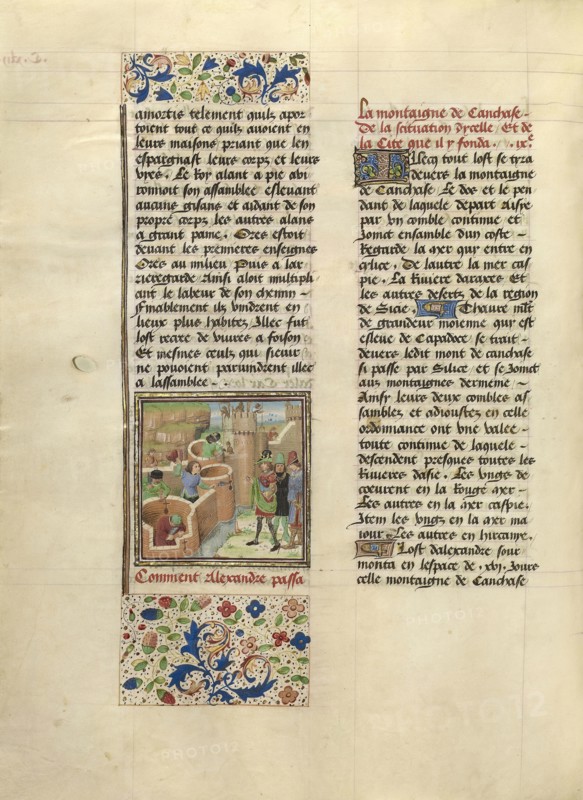 amortis telement quilz apor
toient tout ce quilz auoient en
leurs maisons priant que len
espargnast leurs corps et leurs
vyes. Le Roy alant a pie abi
ronnoit son assamblee esleuant
aucuns gisans et aidant de son
propre corps les autres alans
a grant paine. Ores estoit
deuant les premieres enseignes
Ores au milieu Puis a lar
rieregarde Ainsi aloit multipli
ant le labeur de son chemin -
Finablement ilz vindrent en
lieux plus habitez Illec fut
lost recree de viures a foison
Et mesmes ceulx qui sieuir
ne pouoient paruindrent illec
a lassamblee - -
Comment Alexandre passa
La montaigne de Canchase -
De la scituation dycelle Et de
la Cite que il y fonda. .ix.e
Illecq tout lost se tyra
deuers la montaigne
de Canchase Le dos et le pen
dant de laquele depart Aisye
par vn comble continue et
Jomct ensamble dun coste -
Regarde la mer qui entre en
cylice. De lautre la mer cas
pie. La Riuiere daraxes Et
les autres desertz de la region
de Sicie. Thaure mont
de grandeur moienne qui est
esleue de Capadoce se trait -
deuers ledit mont de canchase
si passe par Silice et se Jomct
aux montaignes dermenie -
Ainsy leurs deux combles as
samblez et adioustez en celle
ordonnance ont vne valee -
toute continue de laquele -
descendent presques toutes les
Riuieres dasie. Les vnges de
coeurent en la Rouge mer -
Les autres en la mer caspie.
Item les vngz en la mer ma
iour Les autres en hircanye.
Lost dalexandre sour
monta en lespace de .xvj. Jours
celle montaigne de Canchase
PHOTO12
PHOTO12
PHOTO12